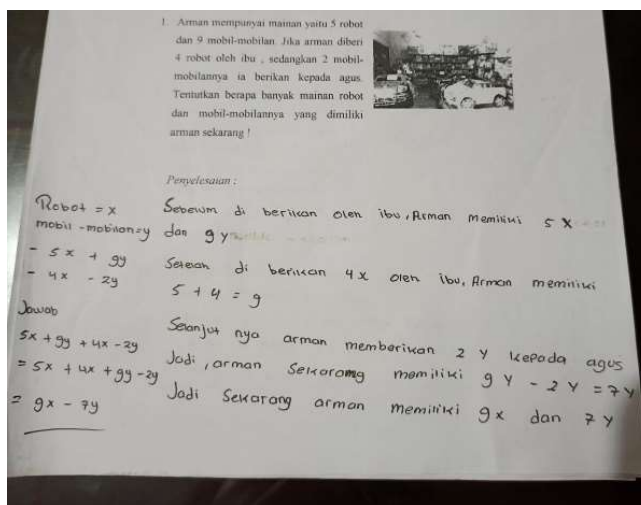 1. Arman mempunyai mainan yaitu 5 robot
dan 9 mobil-mobilan. Jika arman diberi
4 robot oleh ibu , sedangkan 2 mobil-
mobilannya ia berikan kepada agus.
Tentutkan berapa banyak mainan robot
dan mobil-mobilannya yang dimiliki
arman sekarang !
Penyelesaian :
Robot = x
mobil-mobilan=y
- 5x + 9y
- 4x - 2y
Jawab
5x + 9y + 4x - 2y
= 5x + 4x + 9y - 2y
= 9x - 7y
Sebelum di berikan oleh ibu, Arman memiliki 5 x
dan 9 y
Setelah di berikan 4x oleh ibu, Arman memiliki
5 + 4 = 9
Selanjut nya arman memberikan 2 y kepada agus
Jadi, arman Sekarang memiliki 9 y - 2 y = 7 y
Jadi Sekarang arman memiliki 9x dan 7 y